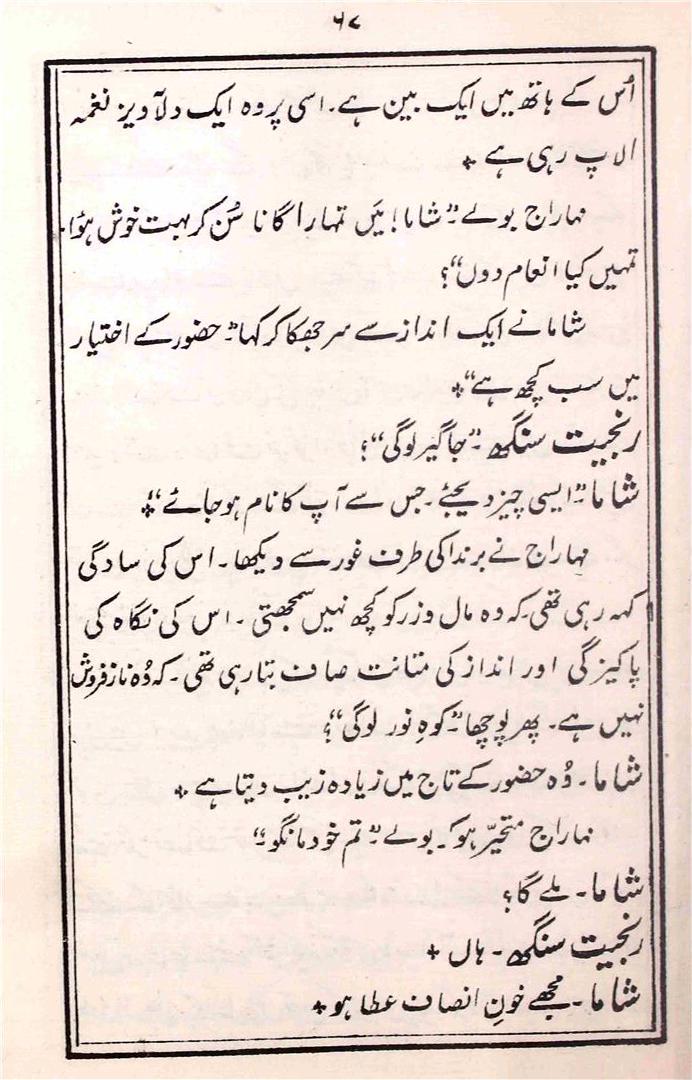 ۶۷
اُس کے ہاتھ میں ایک بین ہے۔ اسی پر وہ ایک دلآویز نغمہ
الاپ رہی ہے +
مہاراج بولے ”شاما! میَں تمہارا گانا سُن کر بہت خوش ہؤا۔
تمہیں کیا انعام دوں“؟
شاما نے ایک انداز سے سر جھکا کر کہا ”حضور کے اختیار
میں سب کچھ ہے“+
رنجیت سنگھ ”جاگیر لوگی“؟
شاما ”ایسی چیز دیجئے۔ جس سے آپ کا نام ہو جائے“+
مہاراج نے برندا کی طرف غور سے دیکھا۔ اس کی سادگی
کہہ رہی تھی۔ کہ وہ مال و زر کو کچھ نہیں سمجھتی۔ اس کی نگاہ کی
پاکیزگی اور انداز کی متانت صاف بتا رہی تھی۔ کہ وُہ نازفروش
نہیں ہے۔ پھر پوچھا ”کوہِ نور لوگی“؟
شاما۔ وُہ حضور کے تاج میں زیادہ زیب دیتا ہے +
مہاراج متحیّر ہو کر بولے ”تم خود مانگو“
شاما۔ ملے گا؟
رنجیت سنگھ۔ ہاں +
شاما۔ مجھے خونِ انصاف عطا ہو +